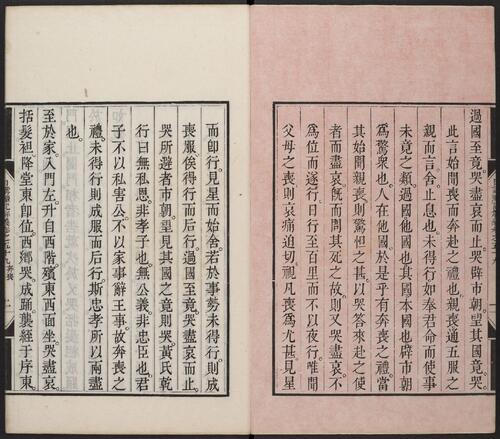 過國至竟。哭盡哀而止。哭辟市朝。望其國竟哭。
此言始聞喪而奔赴之禮也。親喪通五服之
親而言。舍止息也。未得行如奉君命而使事
未竟之類。過國他國也。其國本國也。辟市朝
爲驚衆也。人在他國。於是乎有奔喪之禮。當
其始聞親喪。則驚怛之甚。以哭答來赴之使
者而盡哀。旣而問其死之故。則又哭盡哀。不
爲位而遂行。日行百里而不以夜行。唯聞
父母之喪。則哀痛迫切。視凡喪爲尤甚。見星
而卽行。見星而始舍。若於事勢未得行。則成
喪服。俟得行而后行。過國至竟。哭盡哀而止。
哭所避者市朝。望見其國之竟則哭。黃氏乾
行曰。無私恩。非孝子也。無公義。非忠臣也。君
子不以私害公。不以家事辭王事。故奔喪之
禮。未得行則成服而后行。斯忠孝所以兩盡
也。
至於家。入門左。升自西階。殯東西面坐。哭盡哀。
括髮袒。降堂東卽位。西鄉哭。成踊。襲絰于序東。